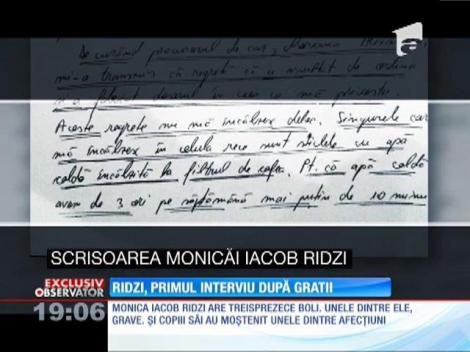 De curând procurorul de caz, Mariana
mi-a transmis că regretă că a ascultat de ordine
în ceea ce mă privește.
Aceste regrete nu mă încălzesc deloc. Singurele care
mă încălzesc în celula rece sunt sticlele cu apă
caldă încălzită la filtrul de cafea. Pt. că apă caldă
avem de 3 ori pe săptămână mai puțin de 10 minute
SCRISOAREA MONICĂI IACOB RIDZI
EXCLUSIV
OBSERVATOR
19:06
RIDZI, PRIMUL INTERVIU DUPĂ GRATII
MONICA IACOB RIDZI ARE TREISPREZECE BOLI. UNELE DINTRE ELE,
GRAVE. ȘI COPIII SĂI AU MOȘTENIT UNELE DINTRE AFECȚIUNI